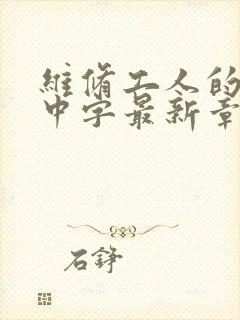 維脩工人的
中字最新章
石錚